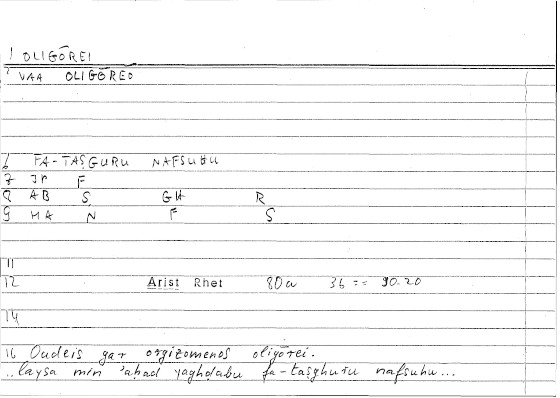 1 OLIGŌREI
2 VAA OLIGŌREŌ
6 FA-TAṢGURU NAFSUHU
7 IP F
8 AB Ṣ GH R
9 HA N F S
11
12 Arist Rhet 80a 36 == 90.20
14
16 Oudeis gar orgizomenos oligōrei.
..laysa min 'ahad yaghḍabu fa-taṣghuru nafsuhu...